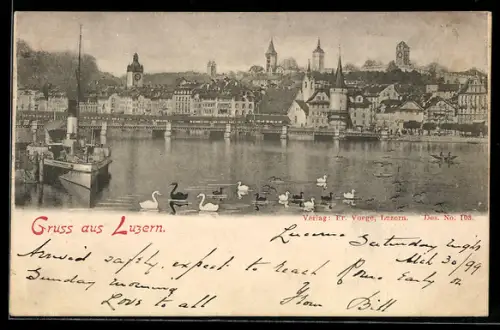 Verlag: Fr. Vorge, Luzern. Dep. No. 128.
Gruss aus Luzern.
Lucerne Saturday night
Mch 30/99
Arrived safely, expect to reach Rome early on
Sunday morning
Love to all
From Bill